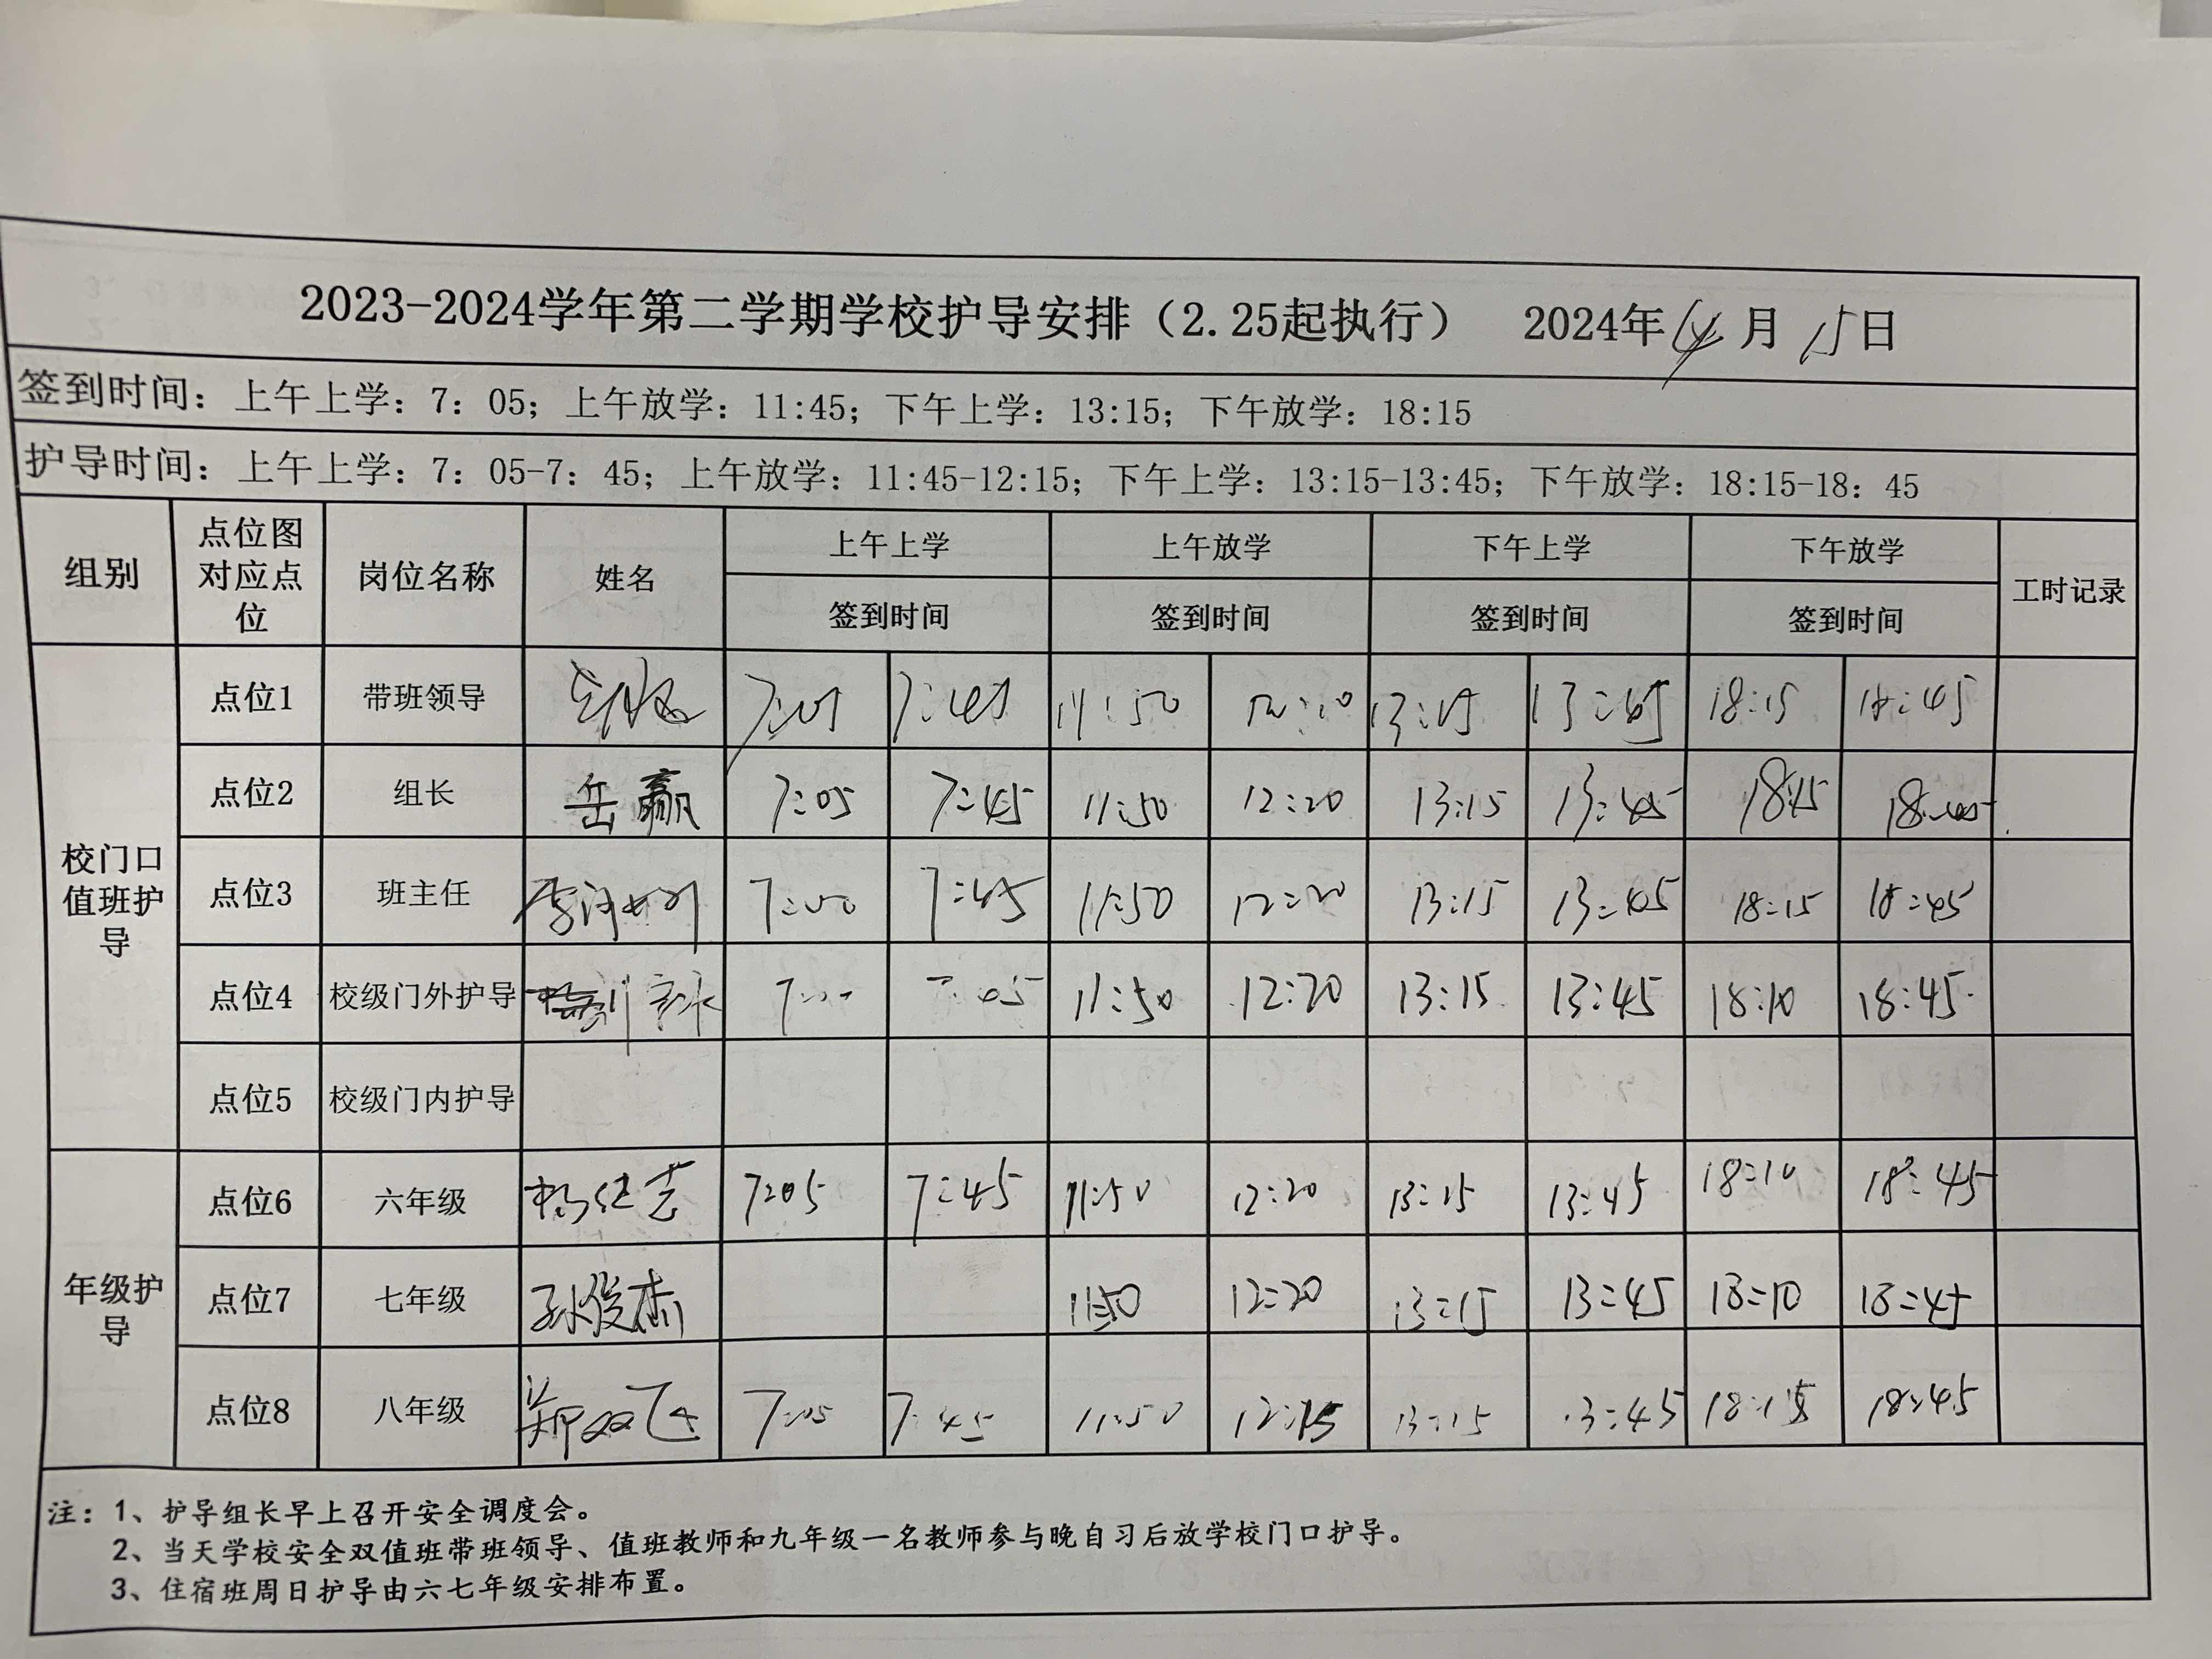 2023-2024学年第二学期学校护导安排（2.25起执行） 2024年4月15日
签到时间：上午上学：7：05；上午放学：11:45；下午上学：13:15；下午放学：18:15
护导时间：上午上学：7：05-7：45；上午放学：11:45-12:15；下午上学：13:15-13:45；下午放学：18:15-18：45
组别 点位图对应点位 岗位名称 姓名 上午上学 上午放学 下午上学 下午放学 工时记录
签到时间 签到时间 签到时间 签到时间
校门口值班护导
点位1 带班领导 7:05 7:45 11:50 13:15 13:45 18:15 18:45
点位2 组长 岳赢 7:05 7:45 11:50 12:20 13:15 13:45 18:15 18:45
点位3 班主任 7:00 7:45 11:50 12:20 13:15 13:45 18:15 18:45
点位4 校级门外护导 11:50 12:20 13:15 13:45 18:10 18:45
点位5 校级门内护导
年级护导
点位6 六年级 7:05 7:45 11:50 12:20 13:15 13:45 18:10 18:45
点位7 七年级 孙俊杰 11:50 12:20 13:15 13:45 18:10 18:45
点位8 八年级 郑双飞 7:05 7:45 11:50 12:15 13:15 13:45 18:15 18:45
注：1、护导组长早上召开安全调度会。
2、当天学校安全双值班带班领导、值班教师和九年级一名教师参与晚自习后放学校门口护导。
3、住宿班周日护导由六七年级安排布置。